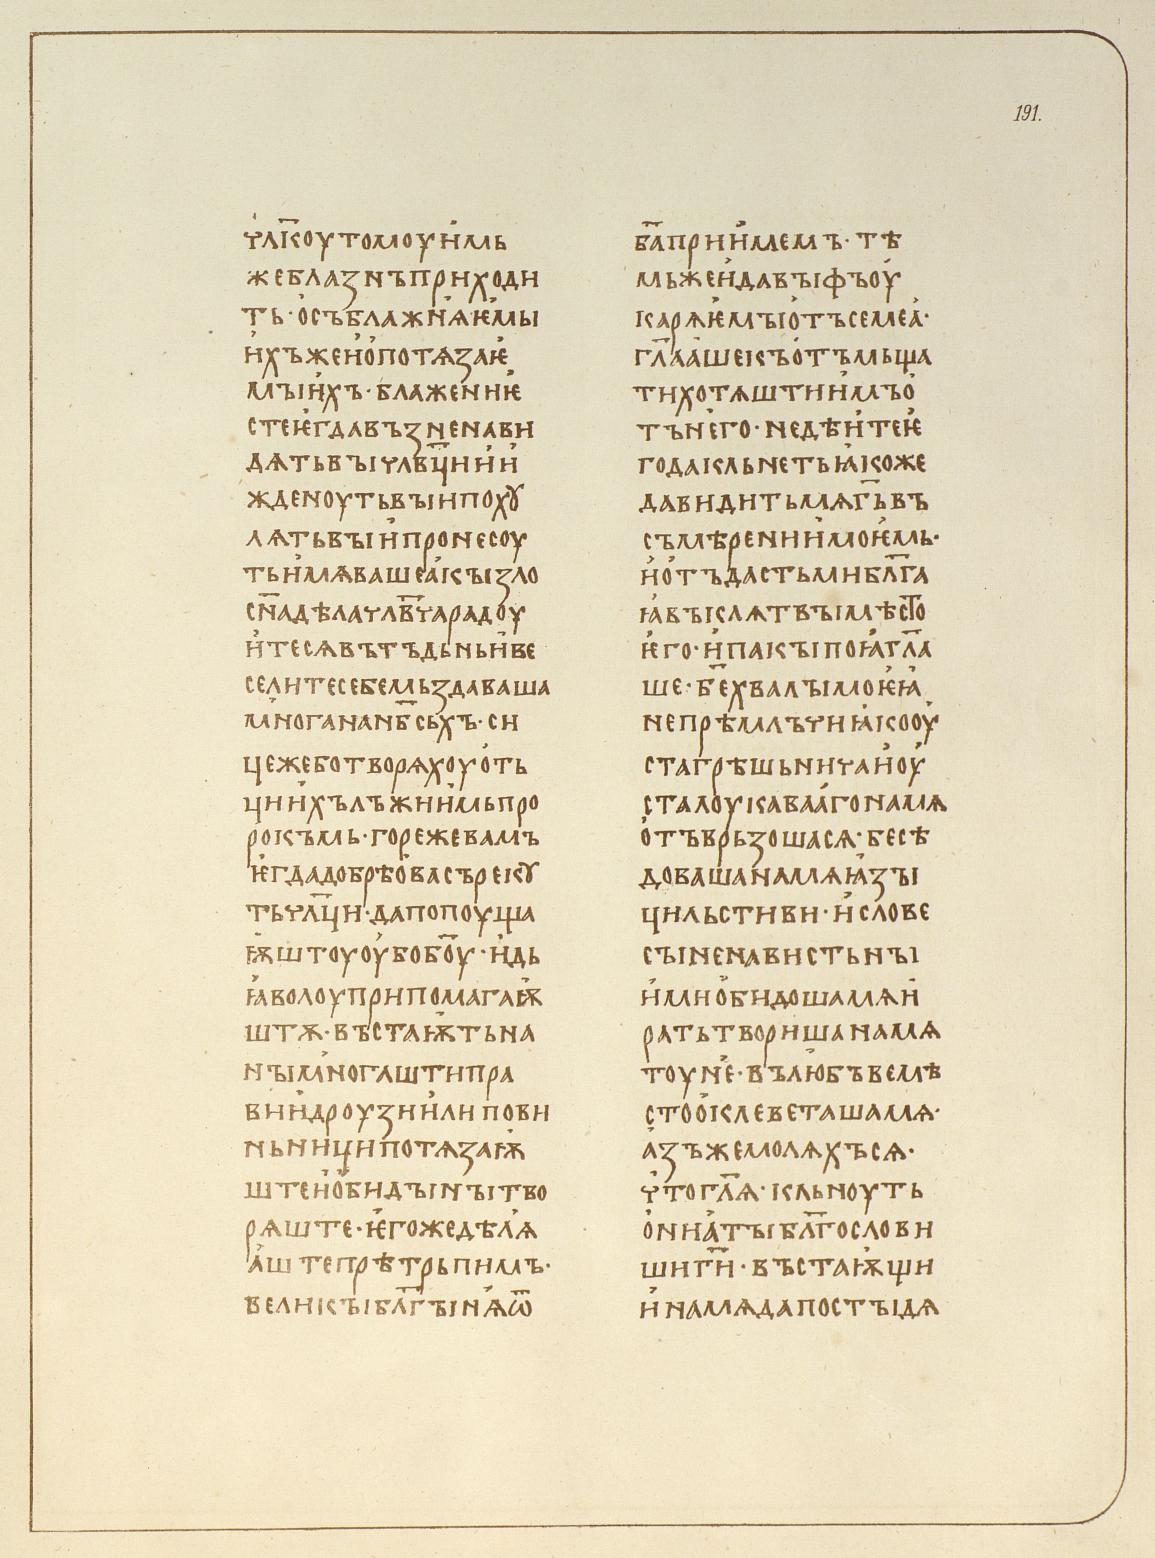 191.
чл҃коу томоу имь
же блазнъ приходи
ть· о съблажнꙗѥмы
ихъ же и о потѧзаѥ
мъіихъ· блажени ѥ
сте ѥгда възненави
дѧть въі члв҃ци и и
жденоуть въі и похꙋ
лѧть въі и пронесоу
ть имѧ ваше акъі зло
сн҃а дѣла члвч҃а радоу
итесѧ въ тъ дьнь и ве
селитесе бе мьзда ваша
многа на нб҃сьхъ· си
це же бо творѧхоу оть
ци ихъ лъжиимь про
рокъмь· горе же вамъ
ѥгда добрѣ о васъ рекꙋ
ть чл҃ци· да попоуща
ѭштоу оубо бо҃у· и дь
ꙗволоу припомагаѭ
штѫ· въстаѭть на
нъі многашти пра
вии дроузии или пови
ньници потѧзаѭ
ште и обидъі нъі тво
рѧште· ѥгоже дѣлꙗ
аште прѣтрьпимъ·
великъі бл҃гъінѧ ѿ
ба҃ приимемъ· тѣ
мьже и давъіфъ оу
карѧѥмъі отъ семеа·
гл҃аше къ отъмьща
ти хотѧштиимъ о
тъ него· не дѣите ѥ
го да кльнеть ꙗкоже
да видить мѧ гь҃ въ
съмѣрении моѥмь·
и отъдасть ми бл҃га
ꙗ въ клѧтвъі мѣсто
ѥго· и пакъі поꙗ гл҃а
ше· бе҃ хвалъі моѥꙗ
не прѣмлъчи ꙗко оу
ста грѣшьнича и оу
ста лоукавааго на мѧ
отъврьзошасѧ· бесѣ
доваша на мѧ ꙗзъі
циль­стиви· и слове
съі ненавистьнъі
ими обидоша мѧ и
рать твориша на мѧ
тоуне· въ любъве мѣ
сто оклеветаша мѧ·
азъ же молѧхъсѧ·
что гл҃ѧ· кльноуть
они а тъі бл҃гослови
ши ги҃· въстаѭщи
и на мѧ да постъідѧ